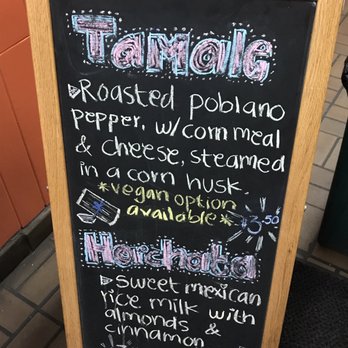 Tamale
Roasted poblano
pepper, w/corn meal
& cheese, steamed
in a corn husk.
*vegan option
available* $3.50
Horchata
sweet mexican
rice milk with
almonds &
cinnamon